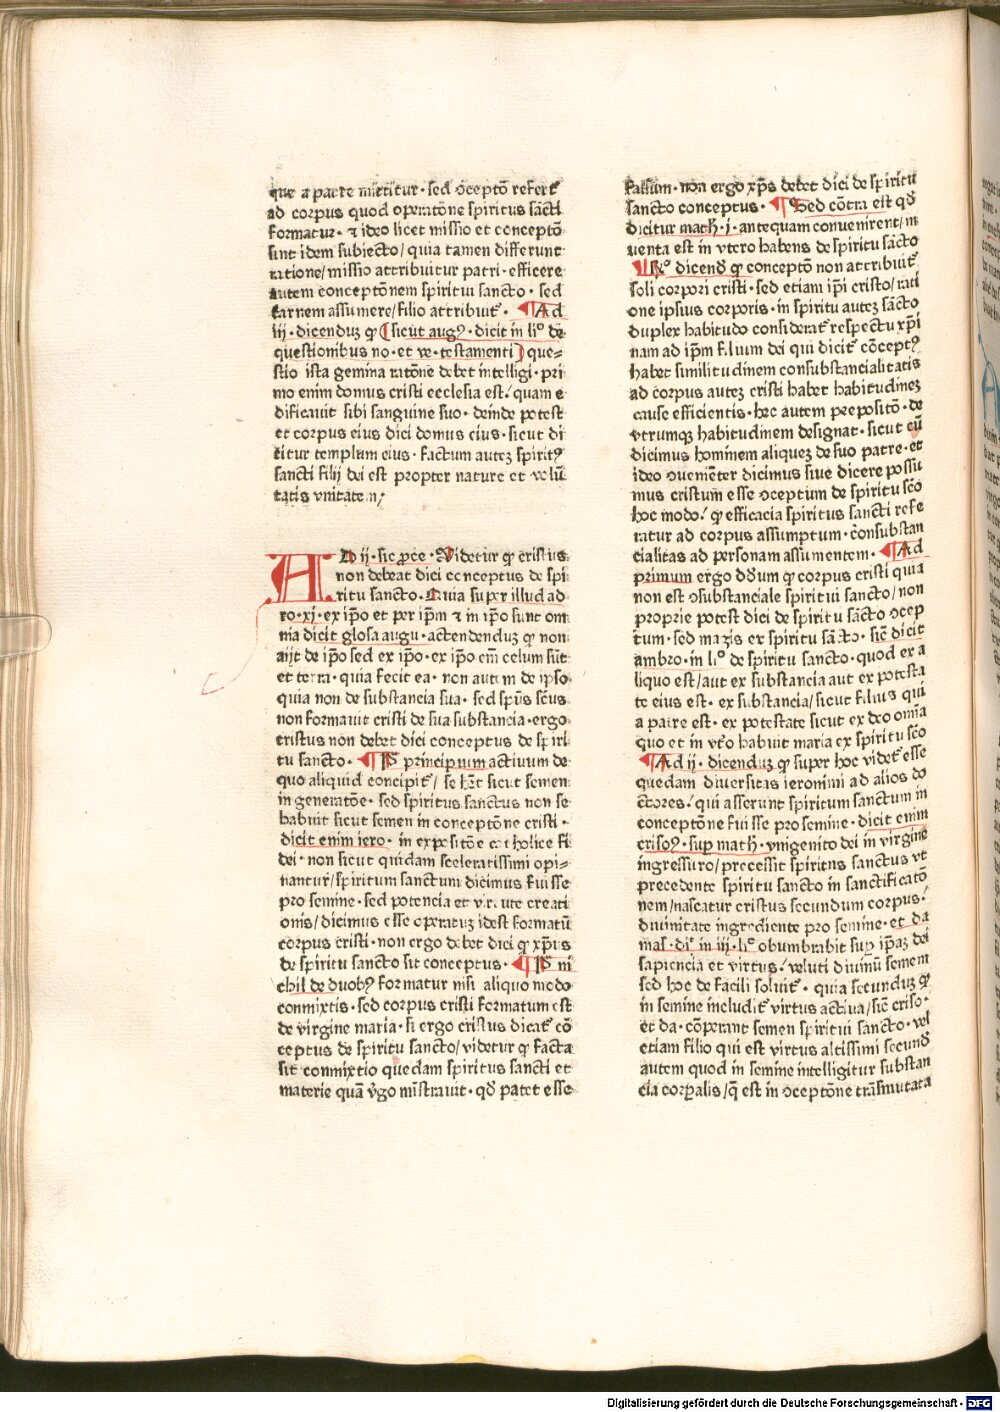 que a patre mittitur · sed ↄceptō refert᷑
ad corpus quod operatōne spiritus sācti
formatur · ⁊ ideo licet missio et conceptō
sint idem subiecto / quia tamen differunt
ratione / missio attribuitur patri · efficere
autem conceptōnem spiritui sancto · sed
carnem assumere / filio attribuit᷑ · ¶ Ad
iij · dicenduꝫ ꝙ (sicut augꝰ · dicit in li° de
questionibus no · et ve · testamenti) que⸗
stio ista gemina ratōne debet intelligi · pri
mo enim domus cristi ecclesia est / quam e
dificauit sibi sanguine suo · deinde potest
et corpus eius dici domus eius · sicut di
citur templum eius · factum auteꝫ spiritꝰ
sancti filij dei est propter nature et volū
tatis vnitatem ;
AD ij · sic ꝓce · Videtur ꝙ cristus
non debeat dici conceptus de spi
ritu sancto · Quia super illud ad
ro · xi · ex ip̄o et per ip̄m ⁊ in ip̄o sunt om
nia dicit glosa augu · actendenduꝫ ꝙ non
ait de ip̄o sed ex ip̄o · ex ip̄o em̄ celum sūt
et terra · quia fecit ea · non autem de ipso
quia non de substancia sua · sed sp̄us sc̄us
non formauit cristi de sua substancia · ergo
cristus non debet dici conceptus de spiri
tu sancto · ¶ P̄ principium actiuum de
quo aliquid concipit᷑ / se hēt sicut semen
in generatōe · sed spiritus sanctus non se
habuit sicut semen in conceptōne cristi ·
dicit enim iero · in expositōe catholice fi
dei · non sicut quidam sceleratissimi opi⸗
nantur / spiritum sanctum dicimus fuisse
pro semine · sed potencia et virtute creati
onis / dicimus esse operatuꝫ idest formatū
corpus cristi · non ergo debet dici ꝙ xp̄us
de spiritu sancto sit conceptus · ¶ P̄ ni
chil de duobꝰ formatur nisi aliquo modo
conmixtis · sed corpus cristi formatum est
de virgine maria · si ergo cristus dicat᷑ cō
ceptus de spiritu sancto / videtur ꝙ facta
sit conmixtio quedam spiritus sancti et
materie quā v̓go mīstrauit · qđ patet esse
falsum · non ergo xp̄s debet dici de spiritu
sancto conceptus · ¶ Sed cōtra est qđ
dicitur math̄ · i · antequam conuenirent / in
uenta est in vtero habens de spiritu sācto
¶ R° dicend̄ ꝙ conceptō non attribuit᷑
soli corpori cristi · sed etiam ip̄i cristo / rati
one ipsius corporis · in spiritu auteꝫ sācto
duplex habitudo considerat᷑ respectu xp̄i
nam ad ip̄m filium dei qui dicit᷑ cōceptꝰ
habet similitudinem consubstancialitatis
ad corpus auteꝫ cristi habet habitudineꝫ
cause efficientis · hec autem prepositō · de
vtrumqꝫ habitudinem designat · sicut cū
dicimus hominem aliqueꝫ de suo patre · et
ideo ↄueniēter dicimus siue dicere possu
mus cristum esse ↄceptum de spiritu sc̄o
hoc modo / ꝙ efficacia spiritus sancti refe
ratur ad corpus assumptum · cōnsubstan
cialitas ad personam assumentem · ¶ Ad
primum ergo dđum ꝙ corpus cristi quia
non est ↄsubstanciale spiritui sancto / non
proprie potest dici de spiritu sācto ↄcep
tum · sed magis ex spiritu sācto · sic̄ dicit
ambro · in li° de spiritu sancto · quod ex a
liquo est / aut ex substancia aut ex potesta
te eius est · ex substancia / sicut filius qui
a patre est · ex potestate sicut ex deo om̄ia
quo et in vt̓o habuit maria ex spiritu sc̄o
¶ Ad ij · dicenduꝫ ꝙ super hoc videt᷑ esse
quedam diuersitas ieronimi ad alios do
ctores / qui asserunt spiritum sanctum in
conceptōne fuisse pro semine · dicit enim
crisoꝰ · sup̄ math̄ · vnigenito dei in virgine
ingressuro / precessit spiritus sanctus vt
precedente spiritu sancto in sanctificatō
nem / nascatur cristus secundum corpus /
diuinitate ingrediente pro semine · et da
mas · di᷑ in iij · li° obumbrabit sup̄ ip̄aꝫ dei
sapiencia et virtus / veluti diuinū semem
sed hoc de facili soluit᷑ · quia secunduꝫ ꝙ
in semine includit᷑ virtus actiua / sic̄ criso ·
et da · cōperant semen spiritui sancto · vel
etiam filio qui est virtus altissimi secund̄
autem quod in semine intelligitur substan
cia corꝑalis / q̄ est in ↄceptōne trāsmutata
Digitalisierung gefördert durch die Deutsche Forschungsgemeinschaft · DFG